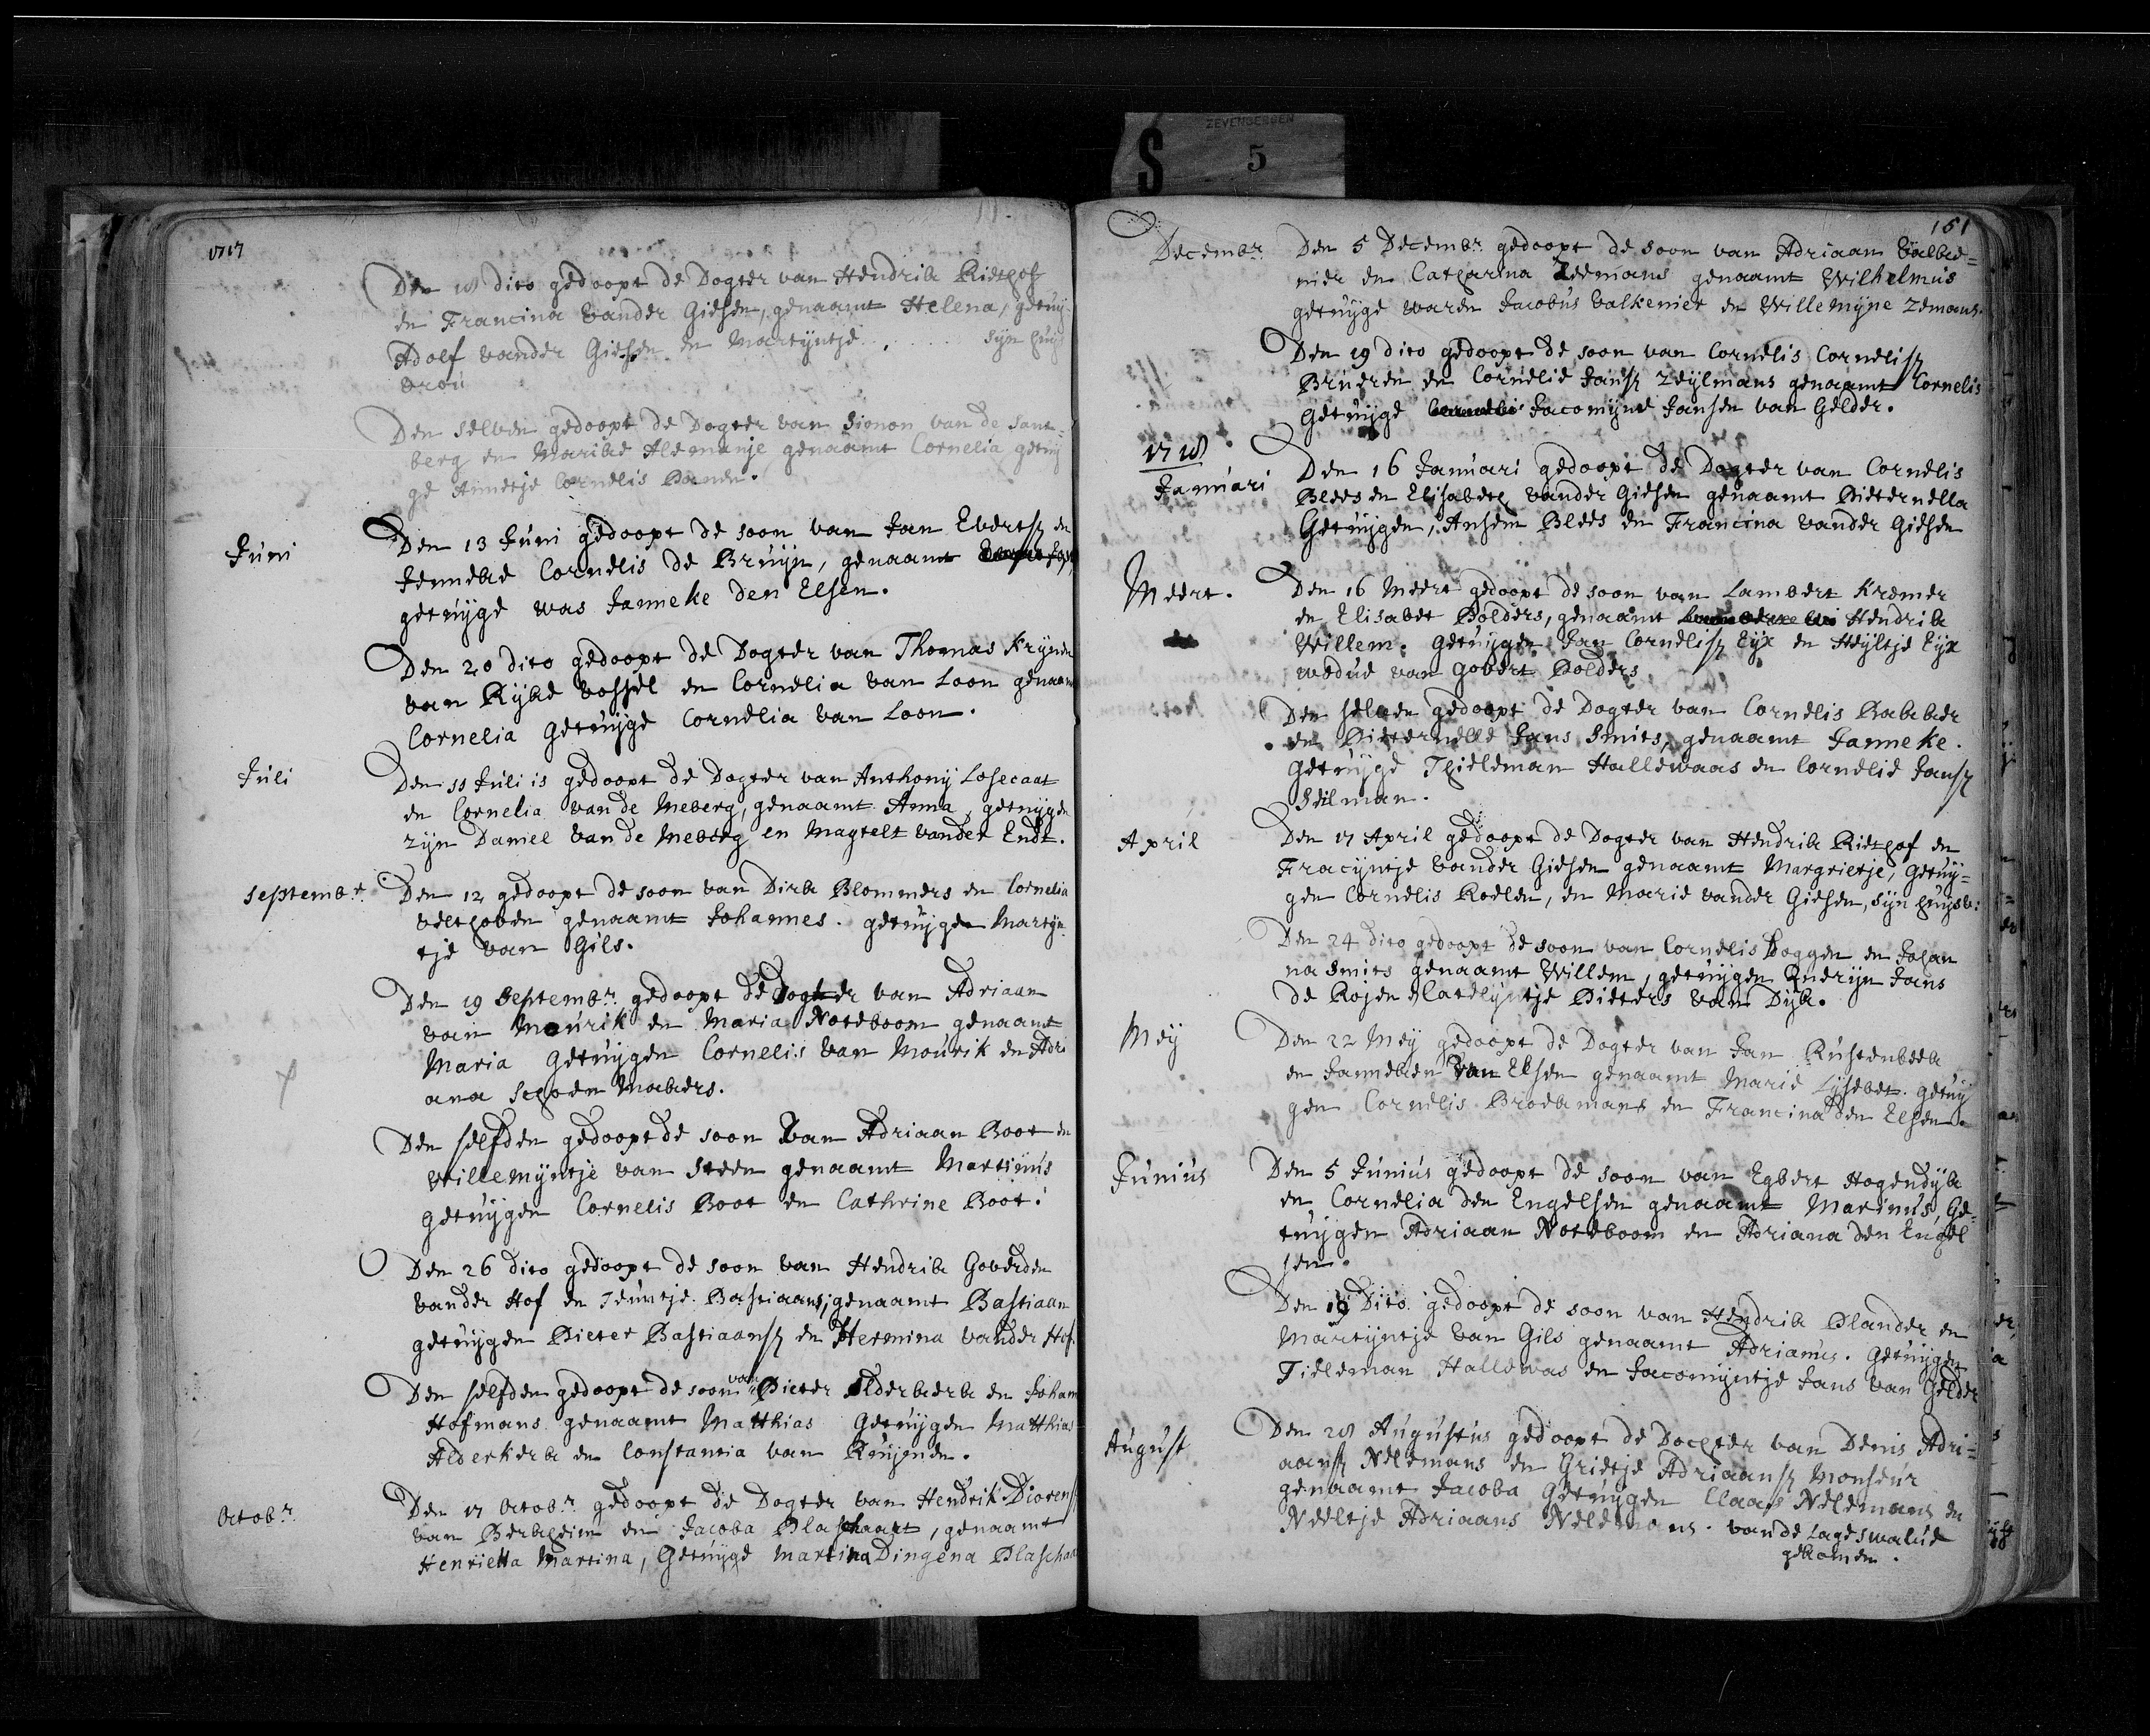 ZEVENBERGEN
S 5
1717
Den 18 dito gedoopt de Dogter van Hendrik Riethof
en Francina vander Giesen, genaamt Helena, getuy-
Adolf vander Giesen en Martyntje . . . . syn huys
vrou
Den selven gedoopt de Dogter van Simon van de Sant-
berg en Marike Alemanje genaamt Cornelia getuy
ge Annetje Cornelis Banen.
Juni
Den 13 Juni gedoopt de soon van Jan Evertsz en
Jenneke Cornelis de Bruyn, genaamt
getuyge was Janneke den Elsen.
Den 20 dito gedoopt de Dogter van Thomas Krynen
van Ryke vossel en Cornelia van Loon genaam
Cornelia getuyge Cornelia van Loon.
Juli
Den 11 Juli is gedoopt de Dogter van Anthony Losecaat
en Cornelia van de Meberg, genaamt Anna, getuygen
zyn Daniel van de Meberg en Magtelt vander Endt.
Septembr.
Den 12 gedoopt de soon van Dirk Blommers en Cornelia
velthoven genaamt Johannes. getuygen Martyn
tje van Gils.
Den 19 Septembr. gedoopt de dogter van Adriaan
van Mourik en Maria Noteboom genaamt
Maria Getuygen Cornelis van Mourik en Adri
ana Schoenmakers.
Den selfden gedoopt de soon van Adriaan Boot en
Willemyntje van Steen genaamt Martinus
getuygen Cornelis Boot en Cathrine Boot.
Den 26 dito gedoopt de soon van Hendrik Goverden
vander Hof en Teuntje Bastiaans, genaamt Bastiaan
getuygen Pieter Bastiaansz en Hermina vander Hof.
Den selfden gedoopt de soon van Pieter Alderkerk en Johan
Hofmans genaamt Matthias Getuygen Matthias
Alderkerk en Constantia van Ruynen.
Octobr.
Den 17 Octobr. gedoopt de Dogter van Hendrik Diorens
van Berkheim en Jacoba Plaschaart, genaamt
Henrietta Martina, Getuyge Martina Dingena Plaschaa
151
Decembr.
Den 5 Decembr. gedoopt de soon van Adriaan Valke=
nier en Catharina Zeemans genaamt Wilhelmus
getuyge waren Jacobus Valkenier en Willemyne Zemans.
Den 19 dito gedoopt de soon van Cornelis Cornelisz
Brueren en Cornelie Jansz Zeylmans genaamt Cornelis
Getuyge Jacomyne Jansen van Gelder.
1718
Januari
Den 16 Januari gedoopt de Dogter van Cornelis
Blees en Elisabeth vander Giesen genaamt Pieternella
Getuygen, Ansem Blees en Francina vander Giesen
Meert.
Den 16 Meert gedoopt de soon van Lambert Kremer
en Elisabet Polders, genaamt Hendrik
Willem. Getuygen Jan Cornelisz Eyx en Heyltje Eyx
wedue van Govert Polders
Den selven gedoopt de Dogter van Cornelis Bakker
en Pieternelle Jans Smits, genaamt Janneke.
Getuyge Thieleman Hallewaas en Cornelie Jansz
Seilman.
April
Den 17 April gedoopt de Dogter van Hendrik Riethof en
Fracyntje vander Giesen genaamt Margrietje, Getuy=
gen Cornelis Roelen, en Marie vander Giesen, syn huysv:
Den 24 dito gedoopt de soon van Cornelis Doggen en Johan
na Smits genaamt Willem, getuygen Queryn Jans
de Rojen Catelyntje Pieters van Dyk.
Mey
Den 22 Mey gedoopt de Dogter van Jan Rustenbeek
en Janneken van Elsen genaamt Marie Lysebet. getuy
gen Cornelis Broekmans en Francina den Elsen.
Junius
Den 5 Junius gedoopt de soon van Egbert Hogendyk
en Cornelia den Engelsen genaamt Marinus, Ge=
tuygen Adriaan Noteboom en Adriana den Engel
sen.
Den 19 Dito gedoopt de soon van Hendrik Plander en
Martyntje van Gils genaamt Adrianus. Getuygen
Tieleman Hallewas en Jacomyntje Jans van Gelder
August
Den 28 Augustus gedoopt de Dochter van Denis Adri=
aansz Nelemans en Grietje Adriaansz Monseur
genaamt Jacoba Getuygen Claas Nelemans en
Neeltje Adriaans Nelemans. van de Lage Swalue
gekomen.